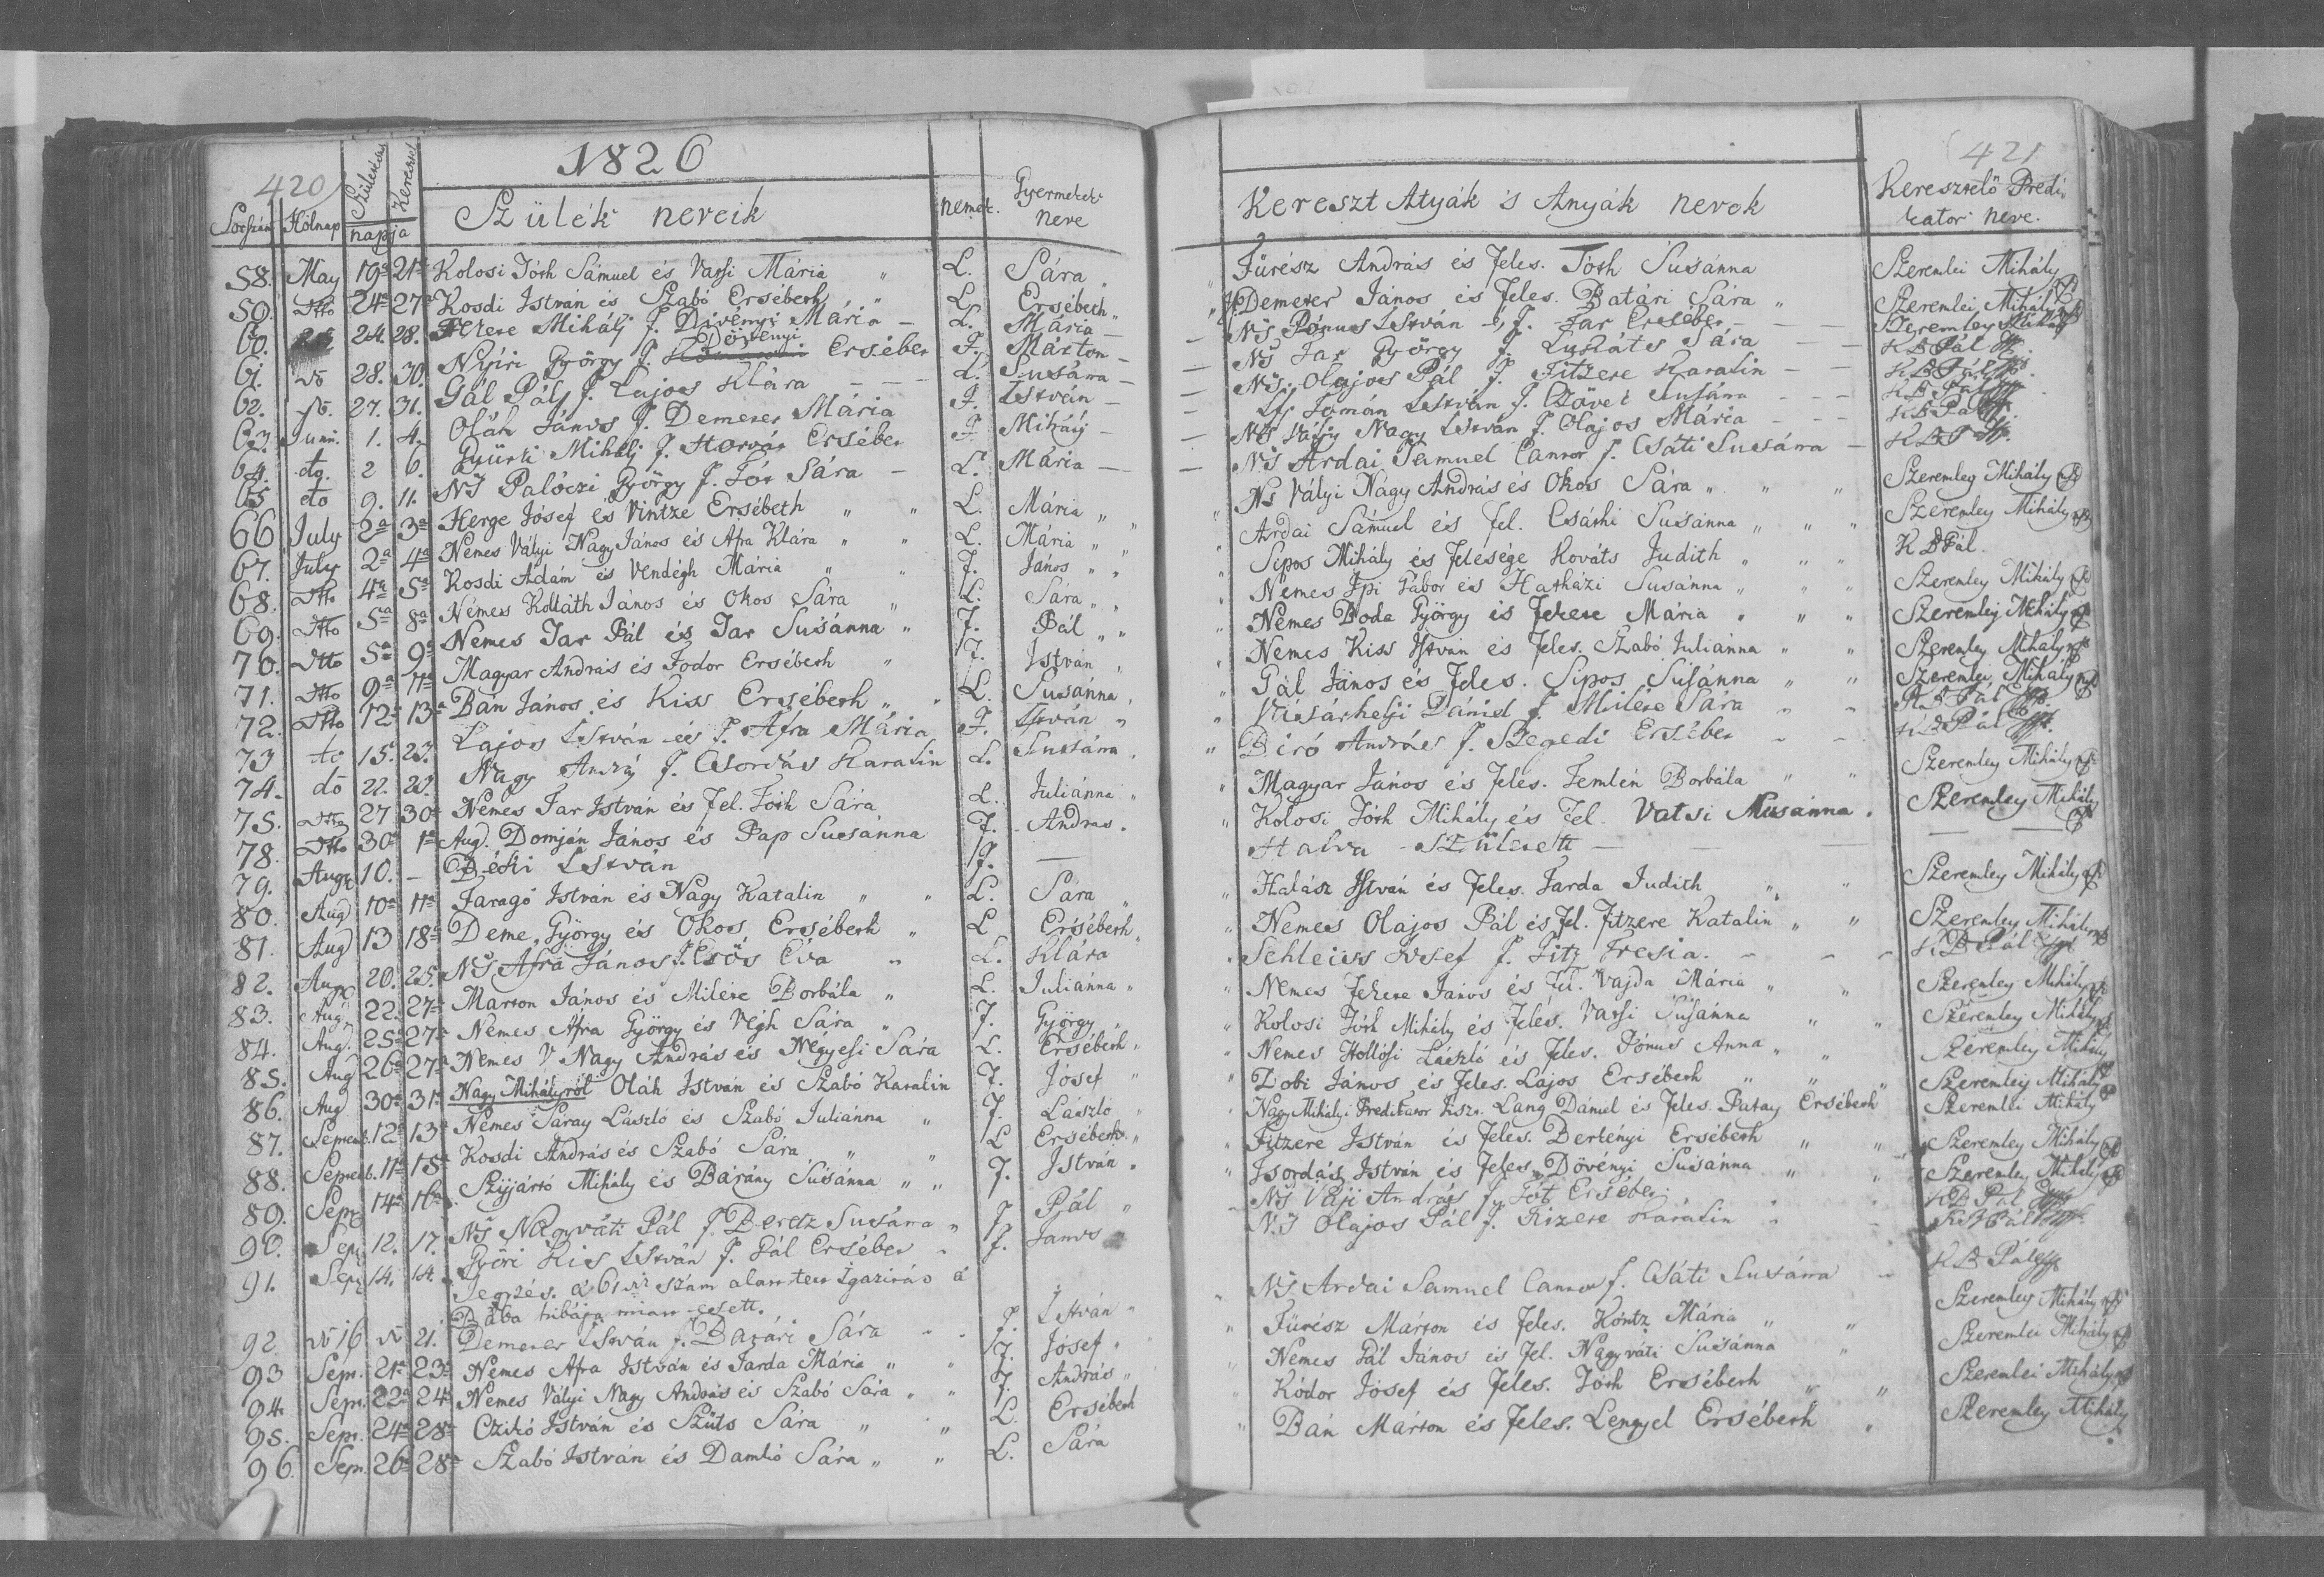 420
1826
421
Sorszám Hólnap Születés Kereszt. napja Szülék neveik nemek. Gyermekek neve Kereszt Atyák 's Anyák nevek Keresztelő Prédikator neve.
58. May 19a 21a Kolosi Tóth Sámuel és Vatsi Mária " L. Sára " Fürész András és Feles. Tóth Susánna Szeremlei Mihály
59. Dtto 24a 27a Kosdi István és Szabó Ersébeth " " L. Ersébeth " Demeter János és Feles. Batári Sára " Szeremlei Mihály
60. 24. 28. Fekete Mihálj f. Divényi Mária — L. Mária — NS Pónus István és f. Tar Ersébet — — Szeremley Mihály
61. do 28. 30. Nyíri György f. Dövényi Ersébet F. Márton — NS Tar György f. Lukáts Sára — — K B Pál
62. do. 27. 31. Gál Pál f. Lajos Klára — — — L. Susána — NS. Olajos Pál f. Fitzere Katalin — — K B Pál
63. Juni. 1. 4. Oláh János f. Demeter Mária F. István — Tamán István f. Susána — — — K B Pál
64. do. 2 6. Györki Mihálj f. Horvát Ersébet F. Mihálj — NS Vályi Nagy István f. Olajos Mária — — K B Pál
65 do 9. 11. NS Palóczi György f. Tót Sára — L. Mária — NS Ardai Samuel Cantor f. Csáti Susánna — K B P
66 July 2a 3a Herge Jósef és Vintze Ersébeth " " L. Mária " " Ns Vályi Nagy András és Okos Sára " " " Szeremley Mihály
67. July 2a 4a Nemes Vályi Nagy János és Afra Klára " " L. Mária " " Ardai Sámuel és fel. Csáthi Susánna " " " Szeremley Mihály
68. Dtto 4a 5a Kosdi Adám és Vendégh Mária " " F. János " " Sipos Mihály és felesége Kováts Judith " " " K B Pál.
69. Dtto 5a 8a Némes Kolláth János és Okos Sára " L. Sára " " Nemes Ipi Gábor és Hatházi Susánna " " " Szeremley Mihály
70. Dtto 5a 9a Nemes Tar Pál és Tar Susánna " F. Pál " " Nemes Boda György és Fekete Mária " " " Szeremlej Mihály
71. Dtto 9a 11a Magyar András és Fodor Ersébeth " F. István " Nemes Kiss István és Feles. Szabó Juliánna " " Szeremley Mihály
72. Dtto 12a 13a Bán János és Kiss Ersébeth " " L. Susánna " Gál János és Feles. Sipos Susánna " " Szeremlei Mihály
73 do 15. 23. Lajos István és f. Afra Mária F. István " Vásárhelji Dániel f. Milere Sára " " K B Pál
74. do 22. 23. Nagy András f. Csordás Katalin L. Susána " Biró András f. Szegedi Ersébet — — K B Pál
75. Dtto 27 30a Nemes Tar István és Fel. Tóth Sára L. Juliánna " Magyar János és Feles. Temlén Borbála " " Szeremley Mihály
78. Dtto 30a 1a Aug. Domján János és Pap Susánna F. András. Kolosi Tóth Mihály és Fel. Vatsi Susánna. Szeremley Mihály
79. Aug 10. — Béki István F. — Halva született — — — —
80. Aug 10a 11a Faragó István és Nagy Katalin " " L. Sára " Halász István és Feles. Tarda Judith " " Szeremley Mihály
81. Aug 13 18a Deme György és Okos Ersébeth " L Ersébeth " Nemes Olajos Pál és Fel. Fitzere Katalin " " Szeremley Mihály
82. Aug 20. 25. NS Afra János f. Csős Éva " L. Klára Schleiss Josef f. Fitz Tresia. — — — K B Pál
83. Aug. 22. 27a Marton János és Milere Borbála " L. Juliánna " Nemes Fekete János és Fel. Vajda Mária " " Szeremley Mihály
84. Aug. 25a 27a Nemes Afra György és Végh Sára " F. György " Kolosi Tóth Mihály és Feles. Vatsi Susánna " " Szeremley Mihály
85. Aug 26a 27a Nemes V Nagy András és Négyesi Sára L. Ersébeth " Nemes Hollósi László és Feles. Pónus Anna " " Szeremley Mihály
86. Aug 30a 31a Nagy Mihályról Oláh István és Szabó Katalin F. Jósef " Dobi János és Feles. Lajos Ersébeth " " " Szeremley Mihály
87. Septemb. 12a 13a Nemes Saray László és Szabó Juliánna " F. László " Nagy Mihályi Predikator Tiszt. Lang Dániel és Feles. Patay Ersébeth Szeremlei Mihály
88. Septemb. 11a 15a Kosdi András és Szabó Sára " " L Ersébeth " Fitzere István és Feles. Bertényi Ersébeth " " Szeremley Mihály
89. Sept 14a 16a Szijjártó Mihály és Bárány Susánna " " F. István " Tsordás István és Feles. Dövényi Susánna " " Szeremley Mihály
90. Sept 12. 17. NS Nagyváti Pál f. Beretz Susána " F Pál " NS Váji András f. Tót Ersébet K B Pál
91. Sept 14. 14. Győri Kis István f. Pál Ersébet " F. János NS Olajos Pál f. Fitzere Katalin K B Pál
Jegyzés. a 61ik szám alatt
Bába hibája miatt esett.
92. do 16 do 21. Demeter István f. Batári Sára " " F. István " NS Ardai Samuel Cantor f. Csáti Susánna " K B Pál
93 Sept. 21a 23a Nemes Afra István és Tarda Mária " " F. Jósef " Fürész Márton és Feles. Kóntz Mária " " Szeremley Mihály
94 Sept. 22a 24a Nemes Vályi Nagy András és Szabó Sára " " F. András " Nemes Pál János és Fel. Nagyváti Susánna " Szeremlei Mihály
95. Sept. 24a 28a Czikó István és Szűts Sára " " L. Ersébeth Kódor Jósef és Feles. Tóth Ersébeth " " Szeremlei Mihály
96. Sept. 26a 28a Szabó István és Damkó Sára " " L. Sára Bán Márton és Feles. Lengyel Ersébeth " Szeremley Mihály